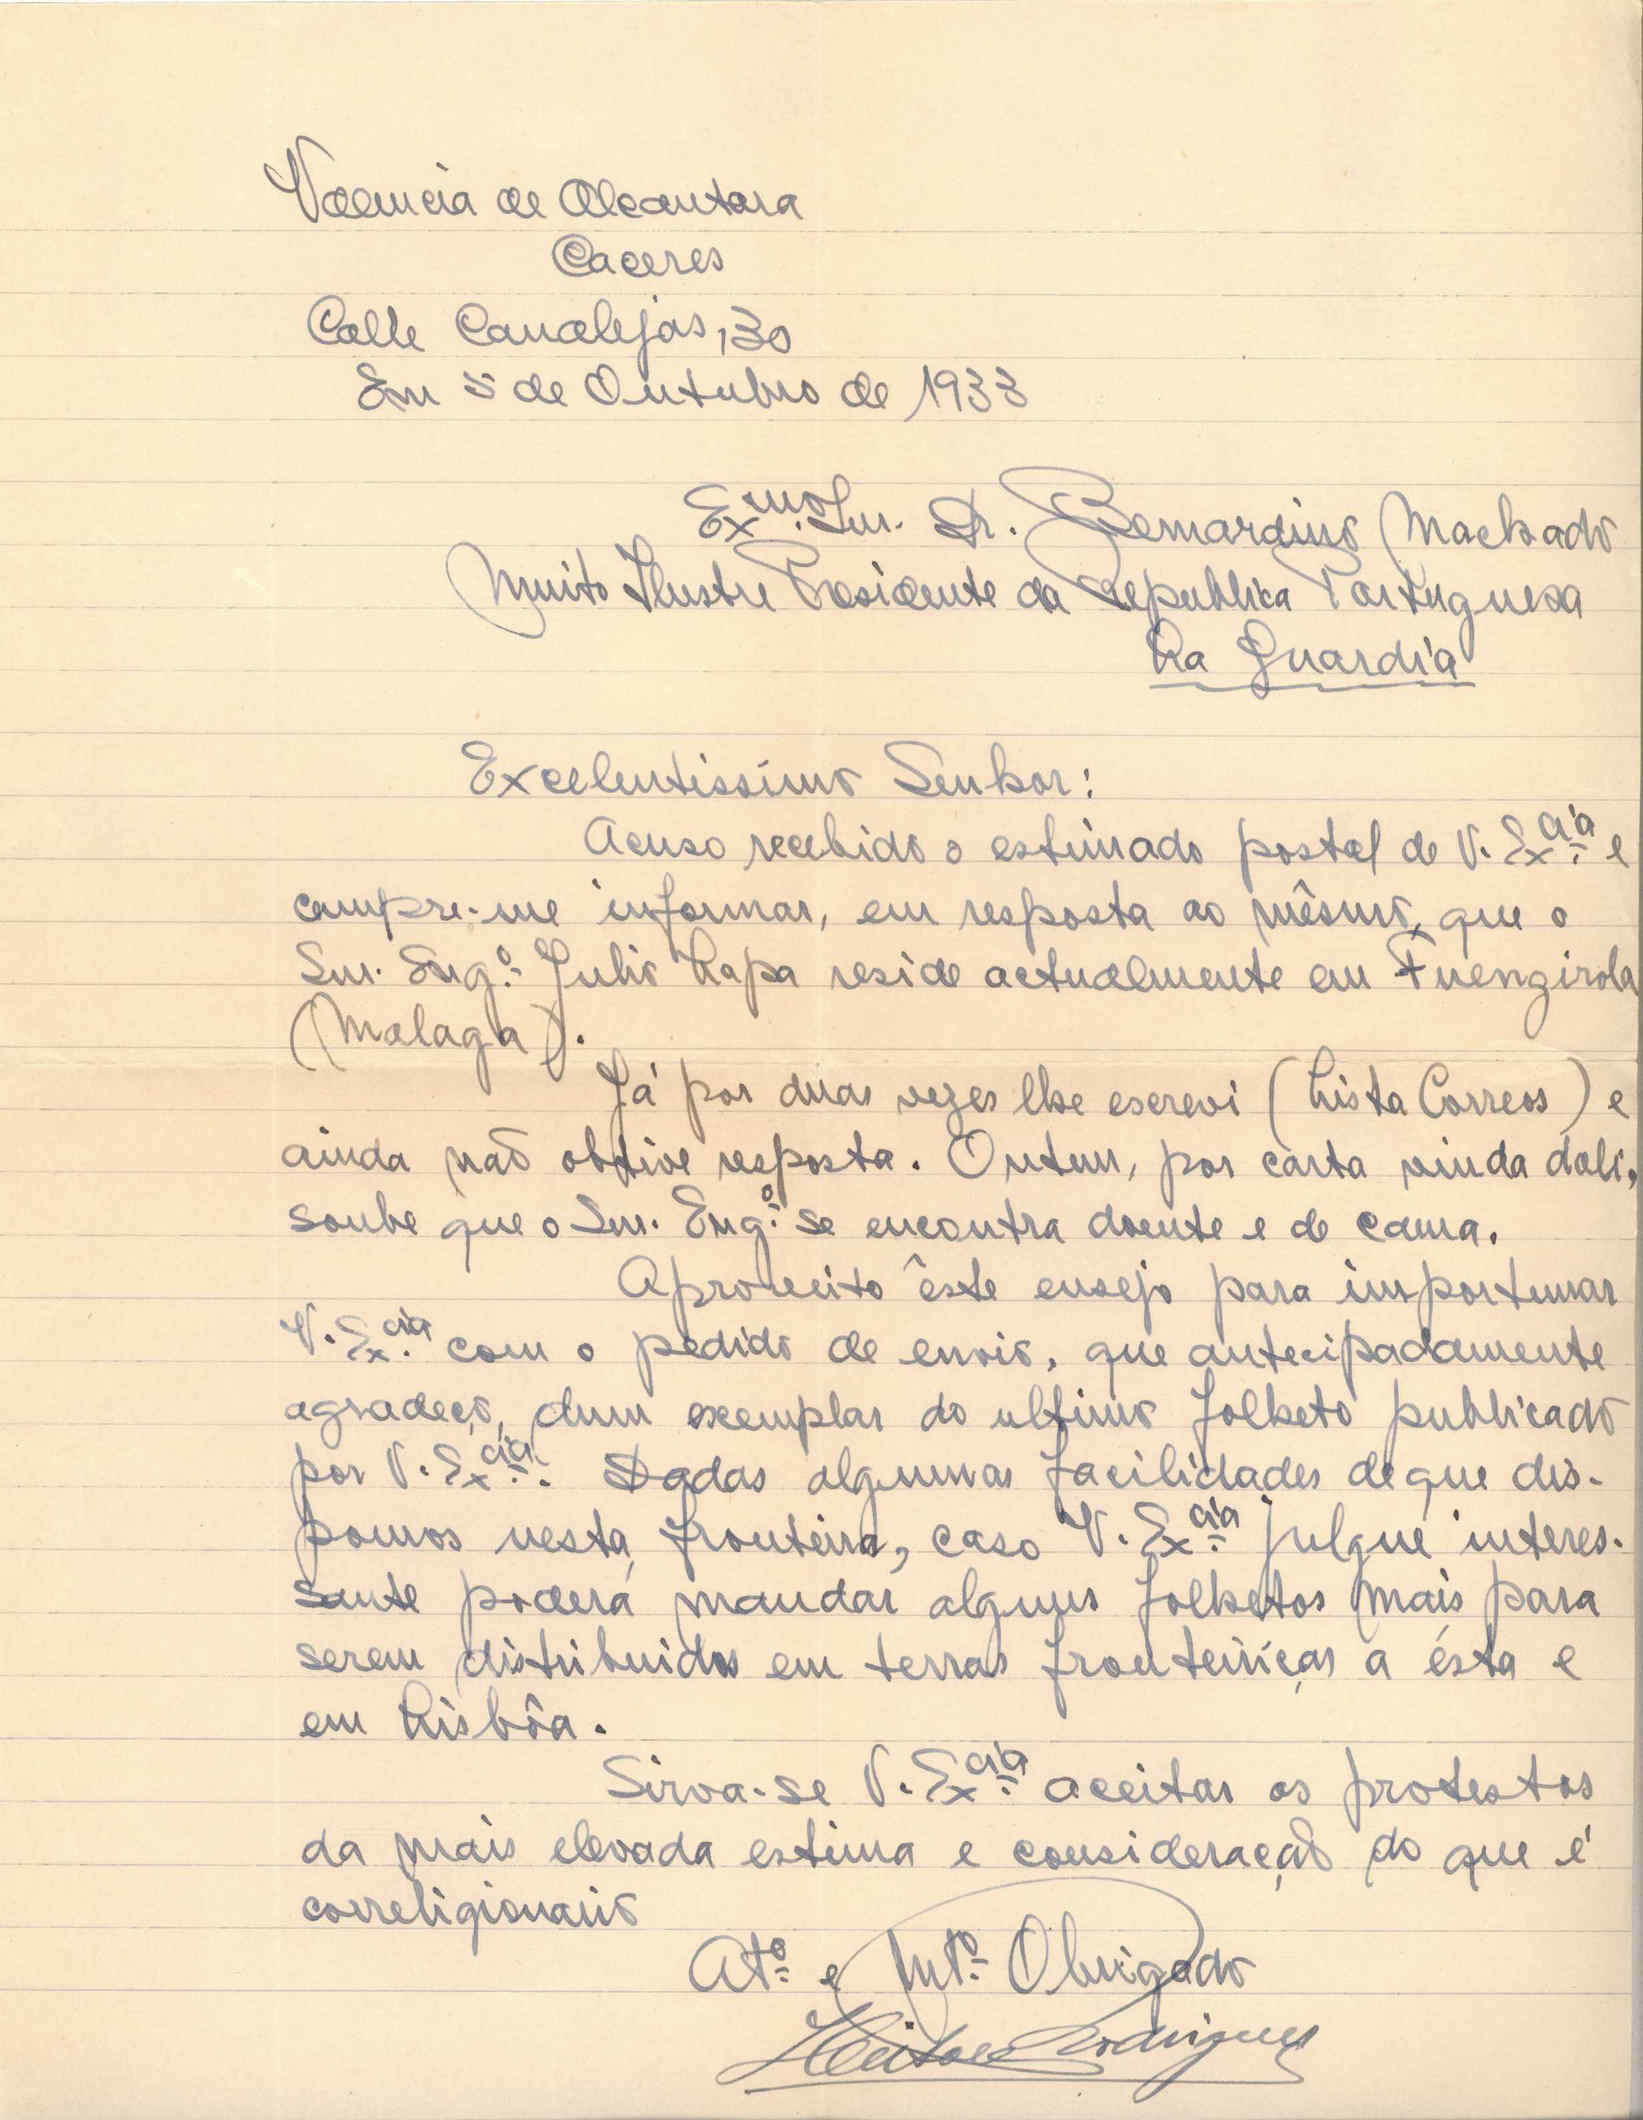 Valencia de Alcantara
Caceres
Calle Canalejas, 30
Em 5 de Outubro de 1933
Exmo. Snr. Dr. Bernardino Machado
Muito Ilustre Presidente da Republica Portuguesa
La Guardia
Excelentissimo Senhor:
Acuso recebido o estimado postal de V. Excia. e
cumpre-me informar, em resposta ao mêsmo, que o
Snr. Engo. Julio Lapa reside actualmente em Fuengirola
(Malaga).
Já por duas vezes lhe escrevi (Lista Correos) e
ainda não obtive resposta. Ontem, por carta vinda dali,
soube que o Snr. Engo. se encontra doente e de cama.
Aproveito êste ensejo para importunar
V. Excia. com o pedido de envio, que antecipadamente
agradeço, dum exemplar do ultimo folheto publicado
por V. Excia.. Dadas algumas facilidades de que dis-
pomos nesta fronteira, caso V. Excia. julgue interes-
sante poderá mandar alguns folhetos mais para
serem distribuidos em terras fronteiriças a ésta e
em Lisbôa.
Sirva-se V. Excia. aceitar os protestos
da mais elevada estima e consideração do que é
correligionario
Ato. e Mto. Obrigado
Heitor Rodrigues